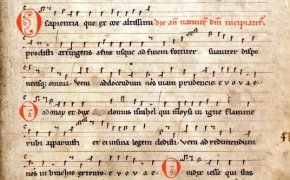 O sapientia que ex ore altissimi die añ nativit̄ dn̄i incipiant̄
prodisti attingens a fine usque ad finem fortiter suaviter dispo
nensq; omnia. veni ad docendum nos viam prudencie. evovae.
O adonay et dux domus israhel qui moysi in igne flamme
rubi apparuisti et ei in syna legem dedisti. veni ad redimendum
nos in brachio extento. Evovae. O radix iesse qui stas